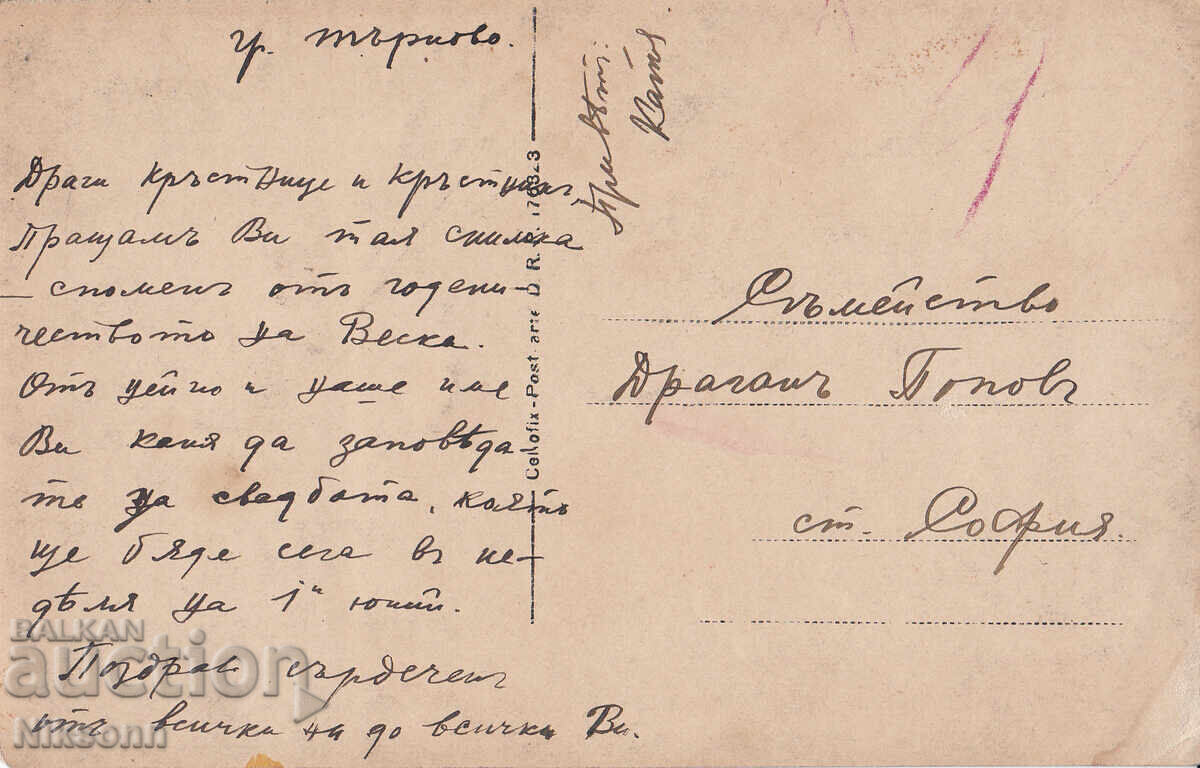 гр. Търново.
Драги кръстнице и кръстник,
Пращамъ Ви тая снимка
– споменъ отъ годени-
чеството на Веска.
Отъ нейно и наше име
Ви каня да заповѣда-
те на сватбата, която
ще бѫде сега въ не-
дѣля на 1й юний.
Поздрав сърдеченъ
отъ всички ни до всички Ви.
Привѣт:
Катя
Cellofix-Post arte D. R. 178323
Съмейство
Драганъ Поповъ
ст. София.
BALKAN
auction
Niksonn